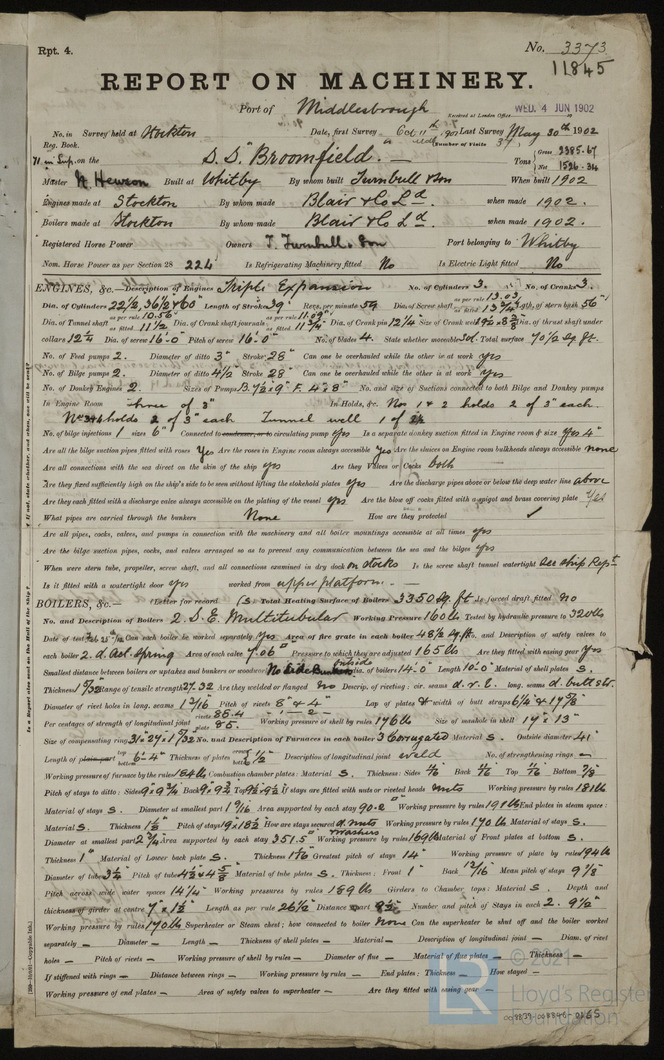 Rpt. 4.
No. 3373
11845
REPORT ON MACHINERY.
Port of Middlesbrough
Received at London Office WED. 4 JUN 1902
No. in Survey held at Stockton Date, first Survey Oct 11th 1901 Last Survey May 30th 1902
Reg. Book. Number of Visits 34
71 in Sup. on the S.S. "Broomfield." Tons Gross 2385.67 Net 1526.34
Master Hewson Built at Whitby By whom built Turnbull & Son When built 1902
Engines made at Stockton By whom made Blair & Co Ld. when made 1902.
Boilers made at Stockton By whom made Blair & Co Ld. when made 1902.
Registered Horse Power Owners T. Turnbull & Son Port belonging to Whitby
Nom. Horse Power as per Section 28 224 Is Refrigerating Machinery fitted No Is Electric Light fitted No
ENGINES, &c.—Description of Engines Triple Expansion No. of Cylinders 3. No. of Cranks 3.
Dia. of Cylinders 22½, 36½ & 60" Length of Stroke 39" Revs. per minute 59 Dia. of Screw shaft as per rule 13.03 as fitted 13¾ Length of stern bush 56"
Dia. of Tunnel shaft as per rule 10.56" as fitted 11½ Dia. of Crank shaft journals as per rule 11.09" as fitted 11¾" Dia. of Crank pin 12¼" Size of Crank webs Dia. of thrust shaft under
collars 12¼ Dia. of screw 16'-0" Pitch of screw 16'-0" No. of blades 4. State whether moveable Sol. Total surface 70½ Sq. ft.
No. of Feed pumps 2. Diameter of ditto 3" Stroke 28" Can one be overhauled while the other is at work yes
No. of Bilge pumps 2. Diameter of ditto 4½ Stroke 28" Can one be overhauled while the other is at work yes
No. of Donkey Engines 2 Sizes of Pumps B. 7½ × 9" F. 4 × 8" No. and size of Suctions connected to both Bilge and Donkey pumps
In Engine Room three of 3" In Holds, &c. Nos 1 & 2 holds 2 of 3" each.
Nos 3 & 4 holds 2 of 3" each Tunnel well 1 of
No. of bilge injections 1 sizes 6" Connected to condenser, or to circulating pump yes Is a separate donkey suction fitted in Engine room & size yes 4"
Are all the bilge suction pipes fitted with roses yes Are the roses in Engine room always accessible yes Are the sluices on Engine room bulkheads always accessible none
Are all connections with the sea direct on the skin of the ship yes Are they Valves or Cocks both
Are they fixed sufficiently high on the ship's side to be seen without lifting the stokehold plates yes Are the discharge pipes above or below the deep water line above
Are they each fitted with a discharge valve always accessible on the plating of the vessel yes Are the blow off cocks fitted with a spigot and brass covering plate yes
What pipes are carried through the bunkers None How are they protected ✓
Are all pipes, cocks, valves, and pumps in connection with the machinery and all boiler mountings accessible at all times yes
Are the bilge suction pipes, cocks, and valves arranged so as to prevent any communication between the sea and the bilges yes
When were stern tube, propeller, screw shaft, and all connections examined in dry dock on stocks Is the screw shaft tunnel watertight see ship Rept
Is it fitted with a watertight door yes worked from upper platform.
BOILERS, &c.— (Letter for record (S) Total Heating Surface of Boilers 3350 Sq. ft Is forced draft fitted no
No. and Description of Boilers 2 S.E. Multitubular Working Pressure 160 lbs Tested by hydraulic pressure to 320 lbs
Date of test Can each boiler be worked separately yes Area of fire grate in each boiler 48½ Sq. ft. No. and Description of safety valves to
each boiler 2. d. act. spring Area of each valve 7.06" Pressure to which they are adjusted 165 lbs Are they fitted with easing gear yes
Smallest distance between boilers or uptakes and bunkers or woodwork No Side Bunkers Inside dia. of boilers 14'-0" Length 10'-0" Material of shell plates S.
Thickness Range of tensile strength 27-32 Are they welded or flanged no Descrip. of riveting: cir. seams d. r. l. long. seams d. butt str.
Diameter of rivet holes in long. seams 1 3/16 Pitch of rivets 8" & 4" Lap of plates & width of butt straps & 17⅝"
Per centages of strength of longitudinal joint rivets 88.4 plate 85. Working pressure of shell by rules 176 lbs Size of manhole in shell 17" × 13"
Size of compensating ring No. and Description of Furnaces in each boiler 3 Corrugated Material S. Outside diameter 41"
Length of plain part top bottom 6'-4" Thickness of plates crown bottom ½" Description of longitudinal joint weld No. of strengthening rings —
Working pressure of furnace by the rules 184 lbs Combustion chamber plates: Material S. Thickness: Sides Back Top Bottom ⅞
Pitch of stays to ditto: Sides Back Top If stays are fitted with nuts or riveted heads nuts Working pressure by rules 181 lb
Material of stays S. Diameter at smallest part 1 9/16 Area supported by each stay 90.2" Working pressure by rules 191 lbs End plates in steam space:
Material S. Thickness Pitch of stays 19" × 18½ How are stays secured d. nuts washers Working pressure by rules 170 lbs Material of stays S.
Diameter at smallest part Area supported by each stay 351.5" Working pressure by rules 169 lbs Material of Front plates at bottom S.
Thickness 1" Material of Lower back plate S. Thickness Greatest pitch of stays 14" Working pressure of plate by rules 194 lbs
Diameter of tubes 3¼ Pitch of tubes Material of tube plates S. Thickness: Front 1" Back Mean pitch of stays 9⅛"
Pitch across wide water spaces 14¼" Working pressures by rules 189 lbs Girders to Chamber tops: Material S. Depth and
thickness of girder at centre 7" × 1½" Length as per rule 26½ Distance apart Number and pitch of Stays in each 2. 9½"
Working pressure by rules 170 lbs Superheater or Steam chest; how connected to boiler None Can the superheater be shut off and the boiler worked
separately — Diameter — Length — Thickness of shell plates — Material — Description of longitudinal joint — Diam. of rivet
holes — Pitch of rivets — Working pressure of shell by rules — Diameter of flue — Material of flue plates — Thickness —
If stiffened with rings — Distance between rings — Working pressure by rules — End plates: Thickness — How stayed —
Working pressure of end plates — Area of safety valves to superheater — Are they fitted with easing gear —
© 2021
Lloyd's Register
Foundation